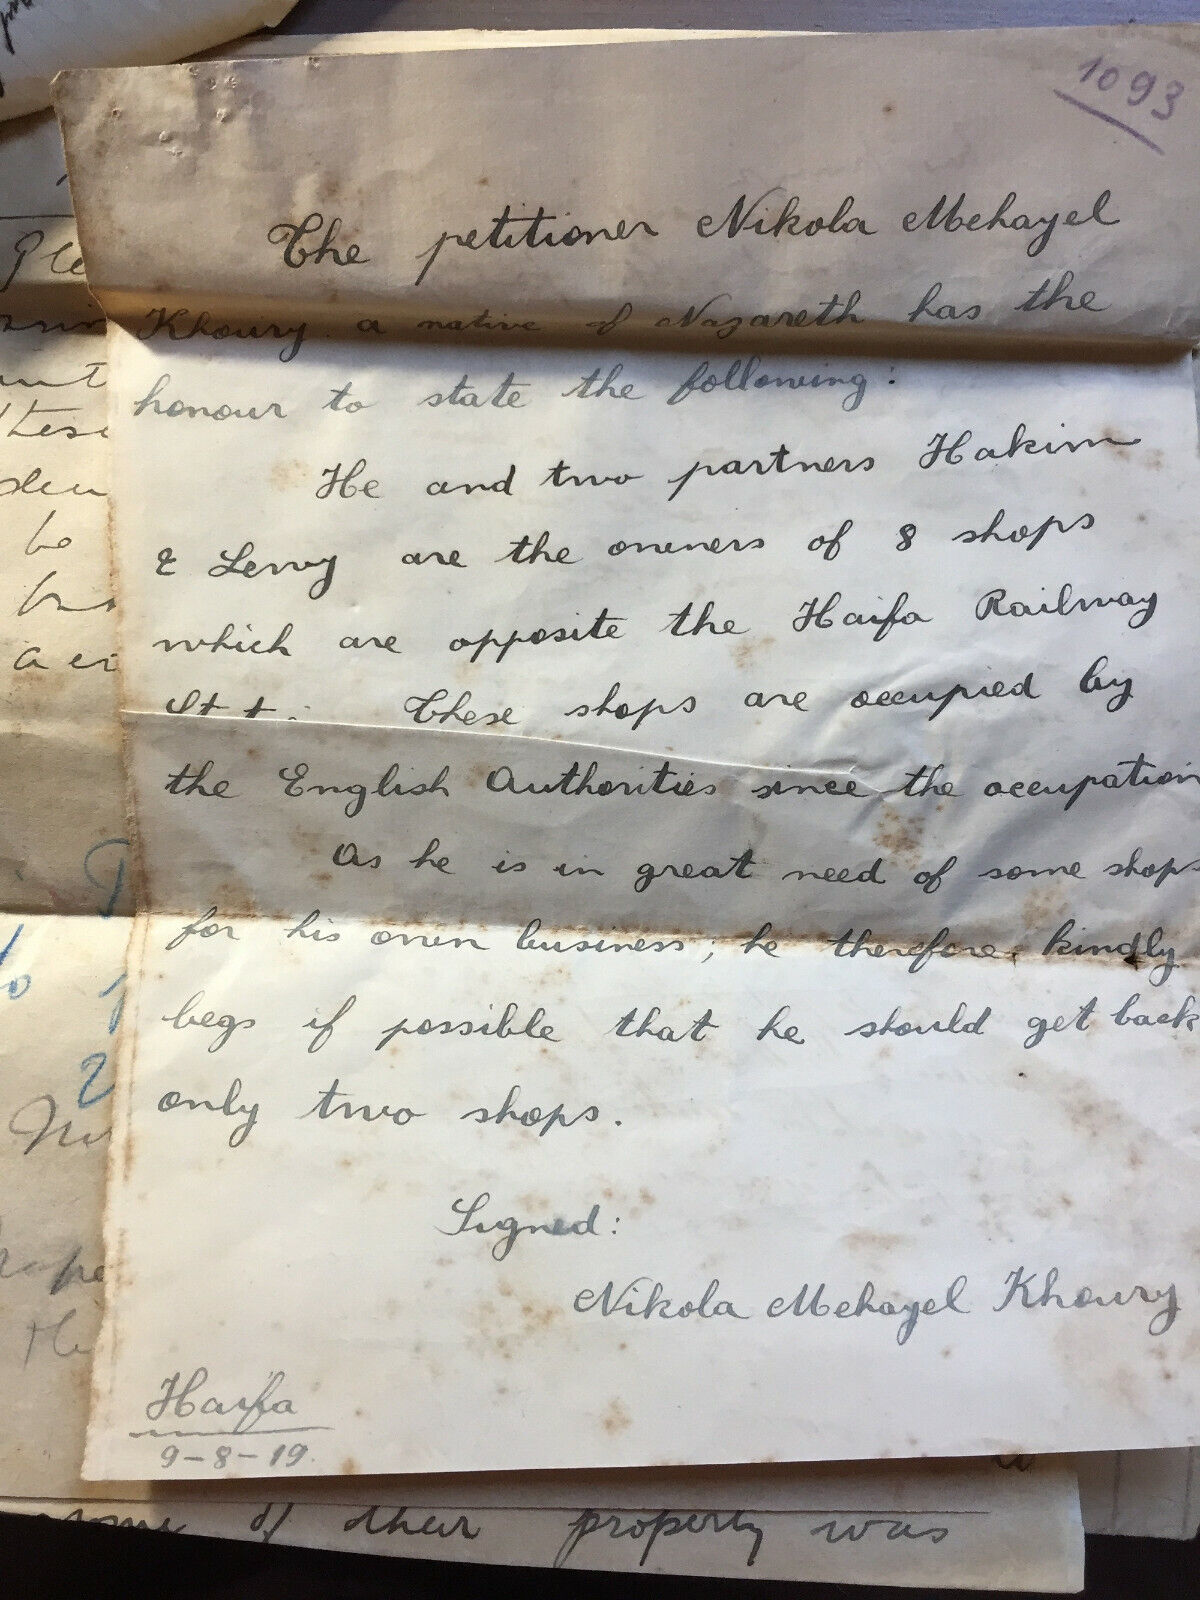 1093
The petitioner Nikola Mehayel
Khoury a native of Nazareth has the
honour to state the following:
He and two partners Hakim
& Levy are the owners of 8 shops
which are opposite the Haifa Railway
These shops are occupied by
the English Authorities since the occupation
As he is in great need of some shops
for his own business; he therefore, kindly
begs if possible that he should get back
only two shops.
Signed:
Nikola Mehayel Khoury
Haifa
9-8-19.
of their property was